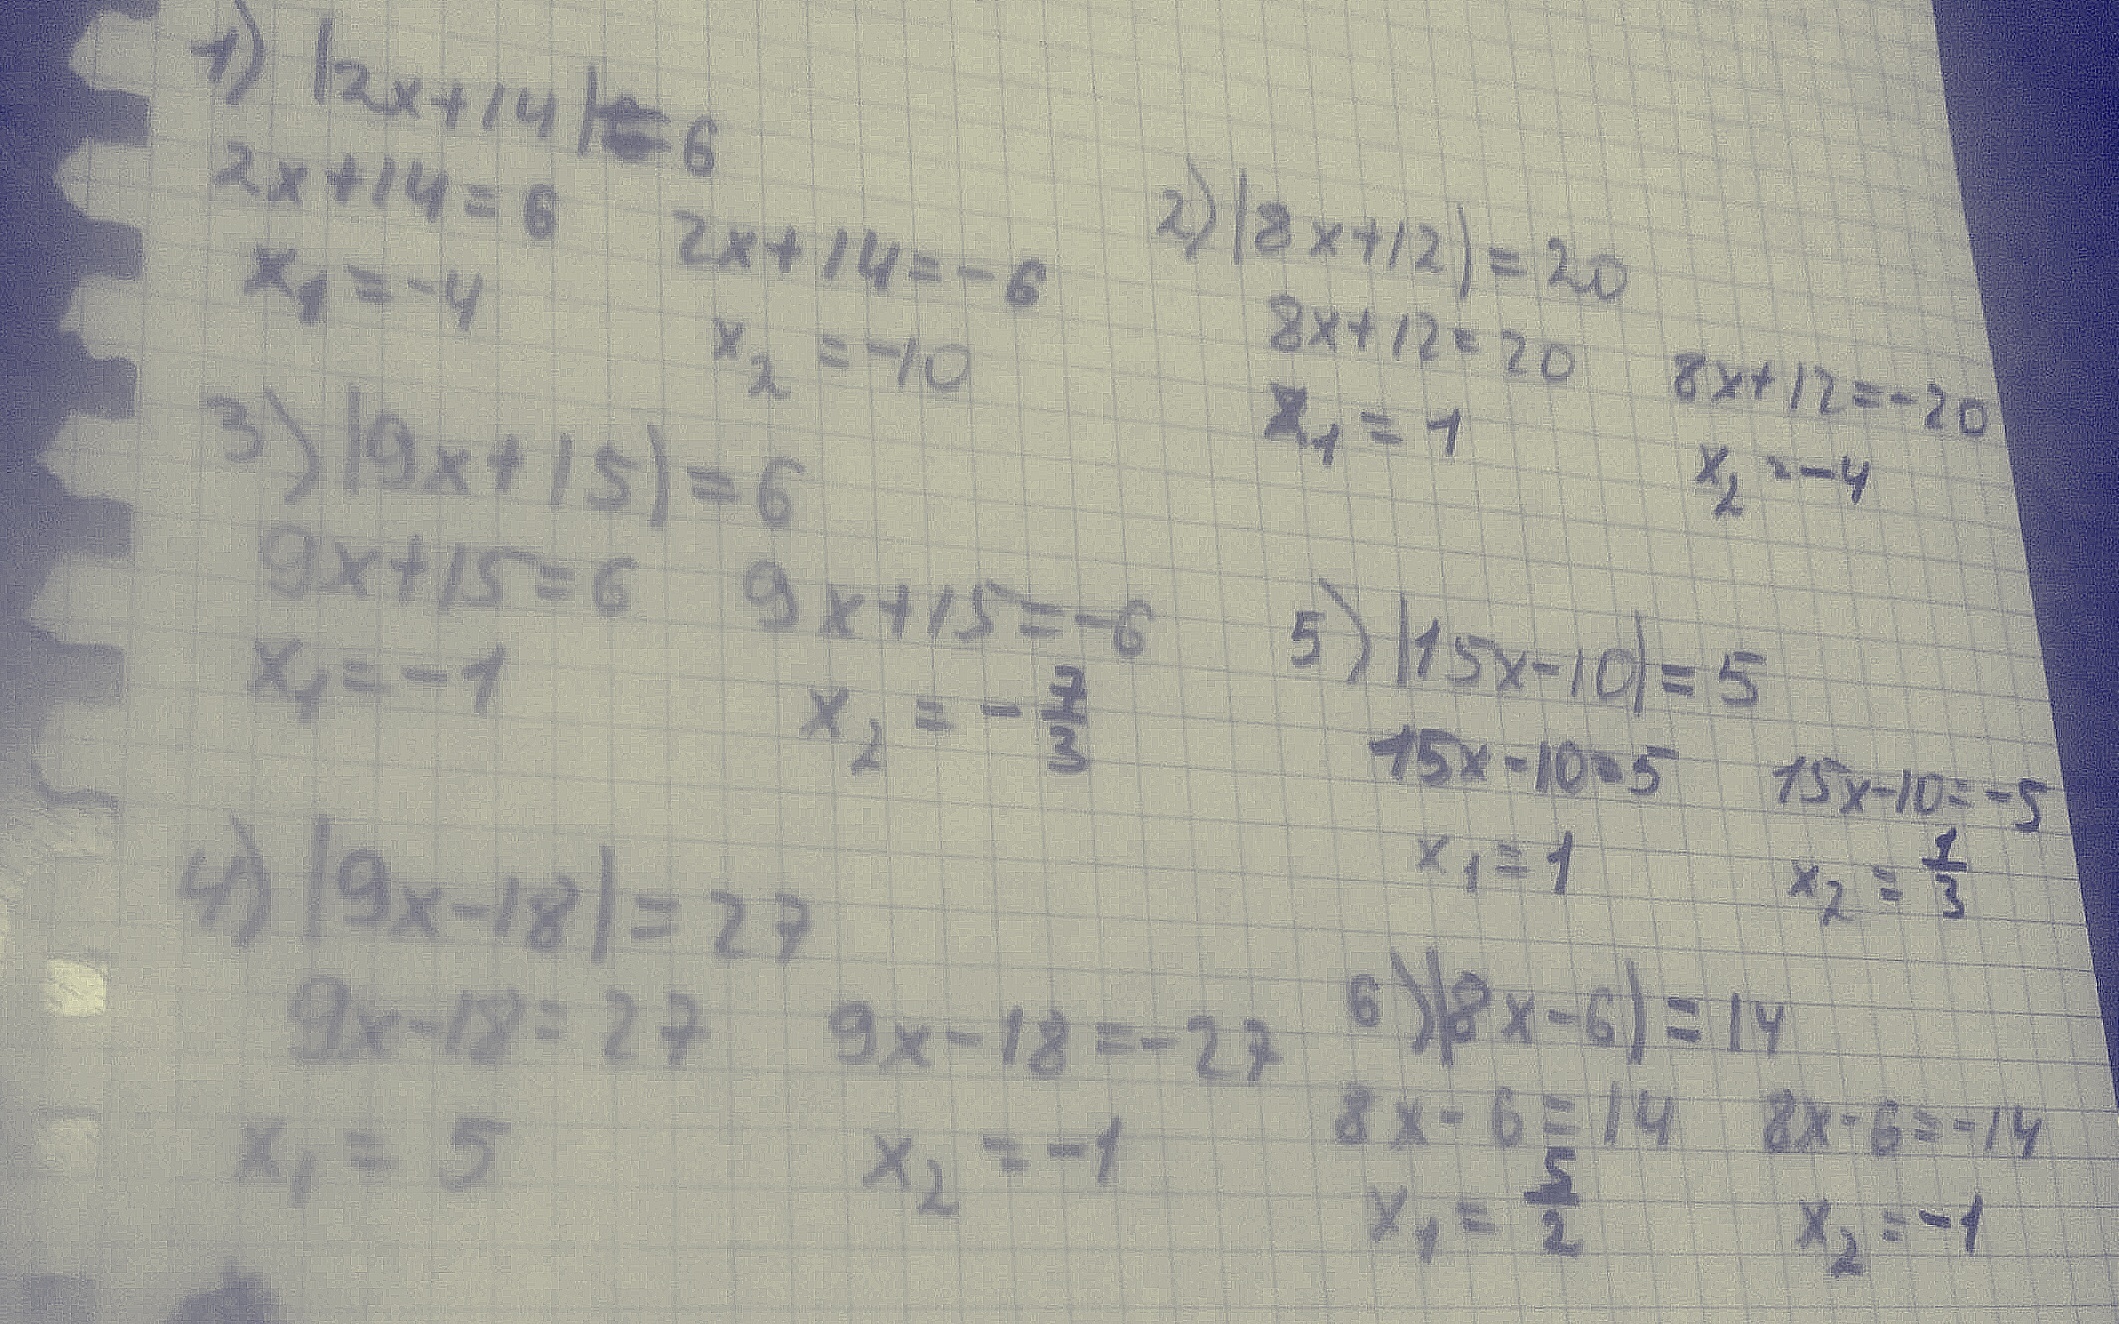 1) |2x+14|=6
2x+14=6   2x+14=-6
x₁=-4   x₂=-10
2) |8x+12|=20
8x+12=20   8x+12=-20
x₁=1   x₂=-4
3) |9x+15|=6
9x+15=6   9x+15=-6
x₁=-1   x₂=-7/3
4) |9x-18|=27
9x-18=27   9x-18=-27
x₁=5   x₂=-1
5) |15x-10|=5
15x-10=5   15x-10=-5
x₁=1   x₂=1/3
6) |8x-6|=14
8x-6=14   8x-6=-14
x₁=5/2   x₂=-1